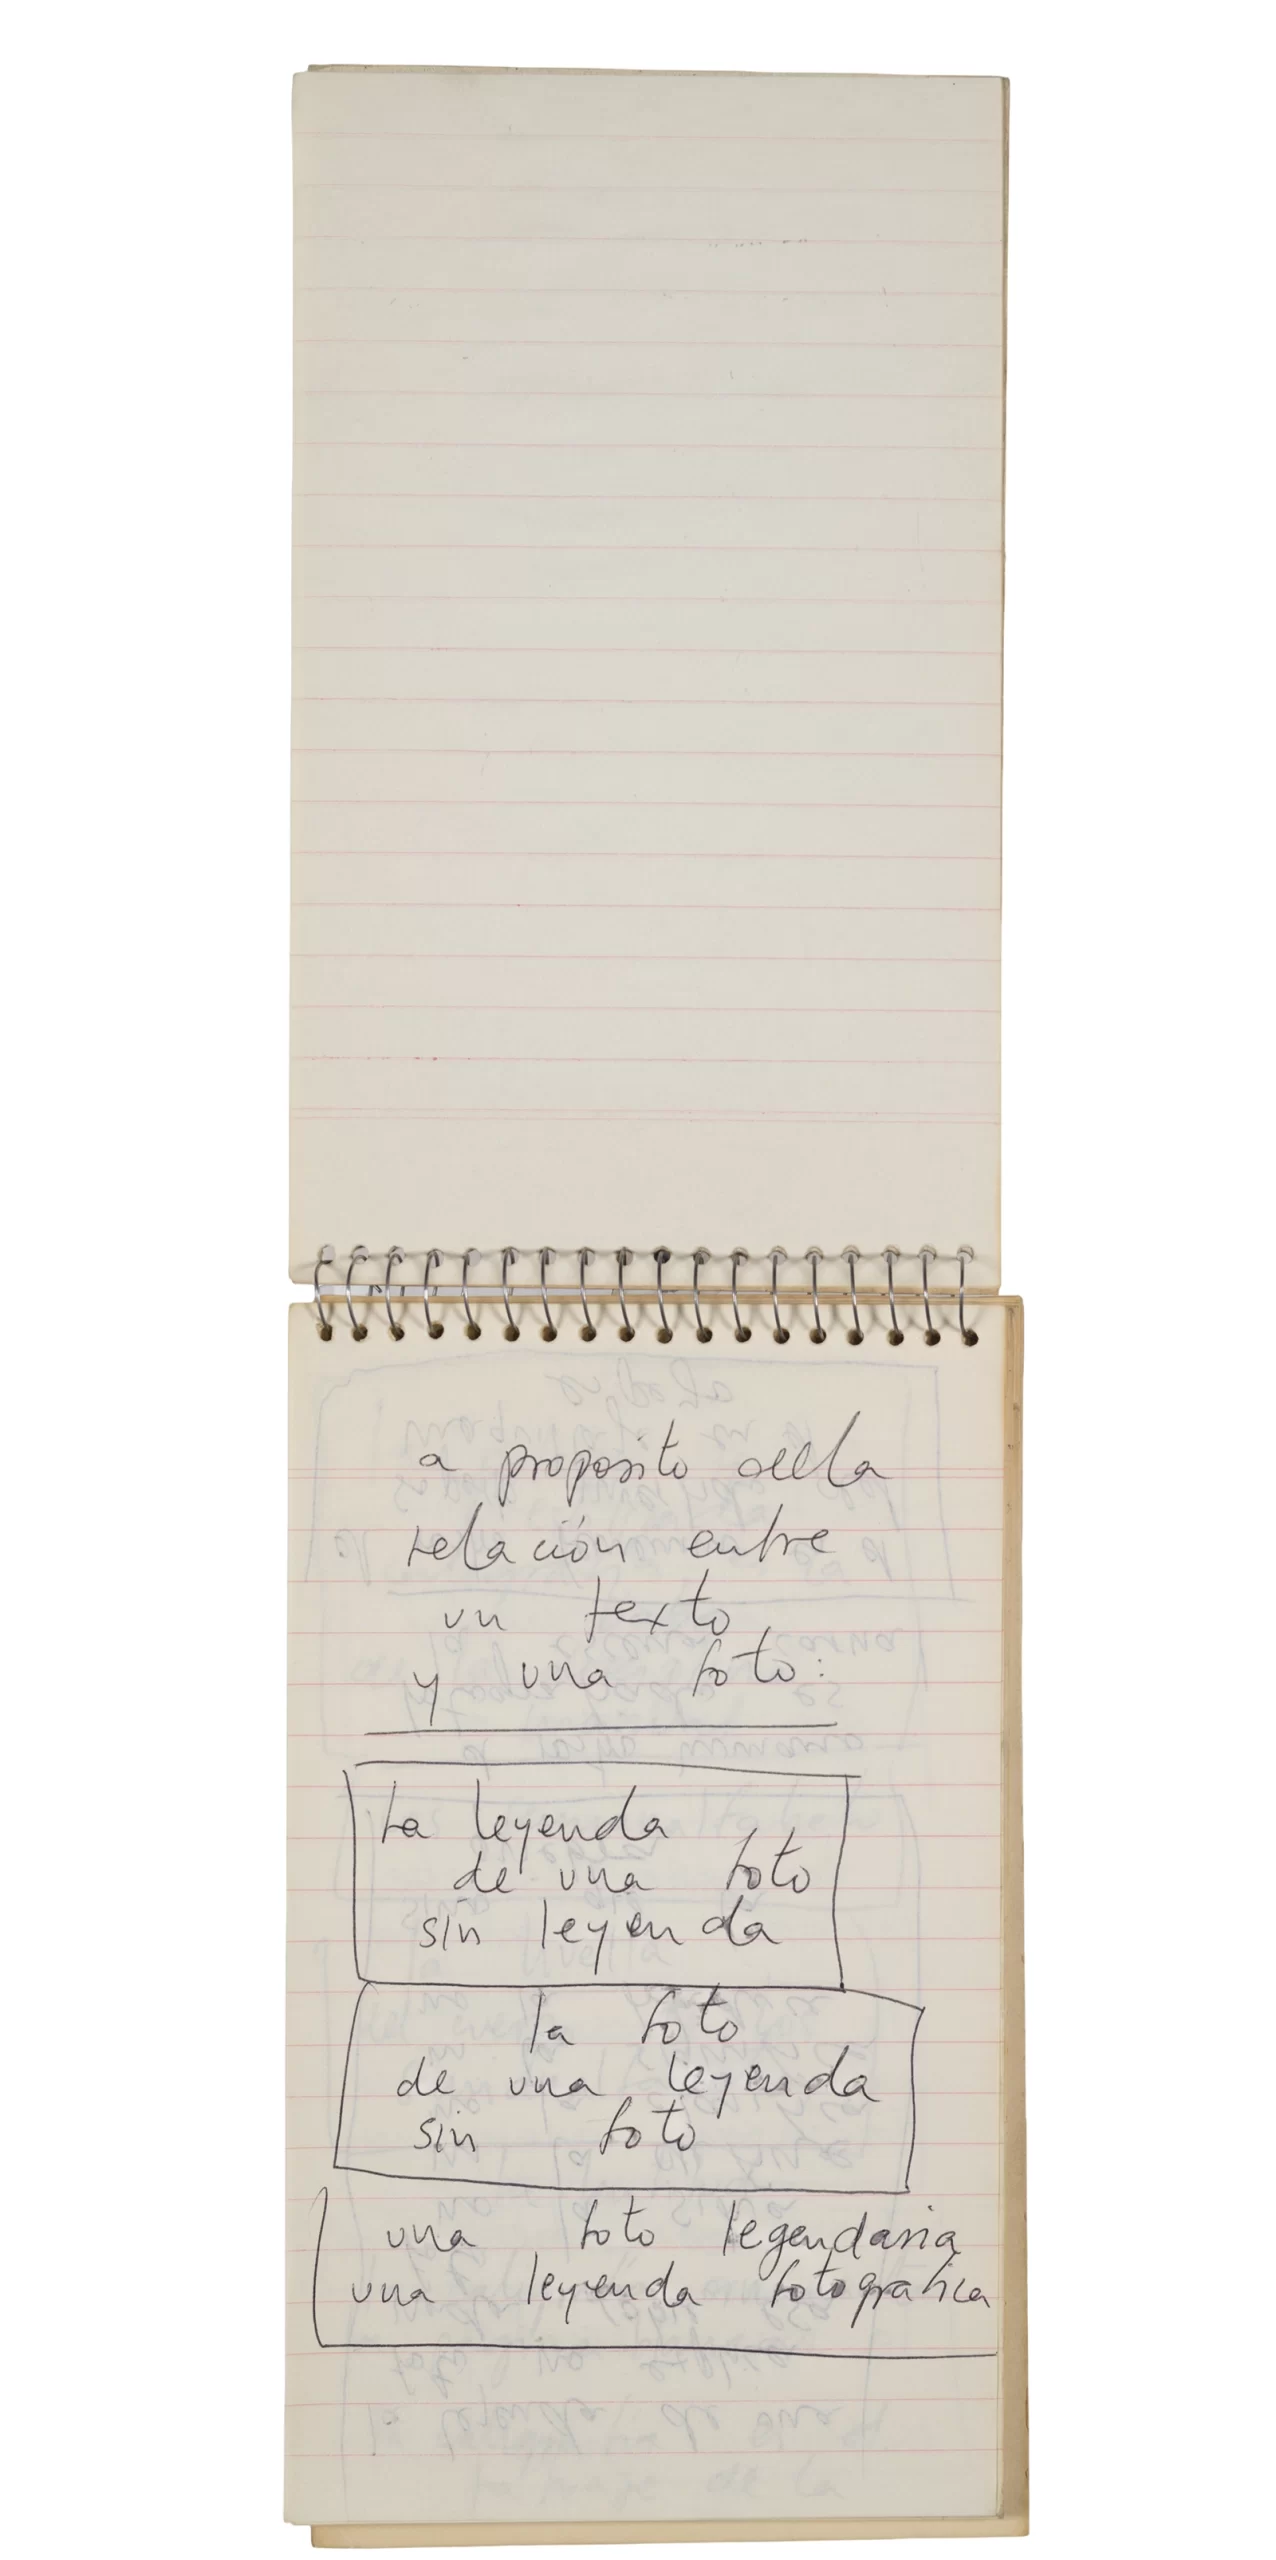 a proposito della
relación entre
un texto
y una foto:
La leyenda
de una foto
sin leyenda
la foto
de una leyenda
sin foto
una foto legendaria
una leyenda fotografica